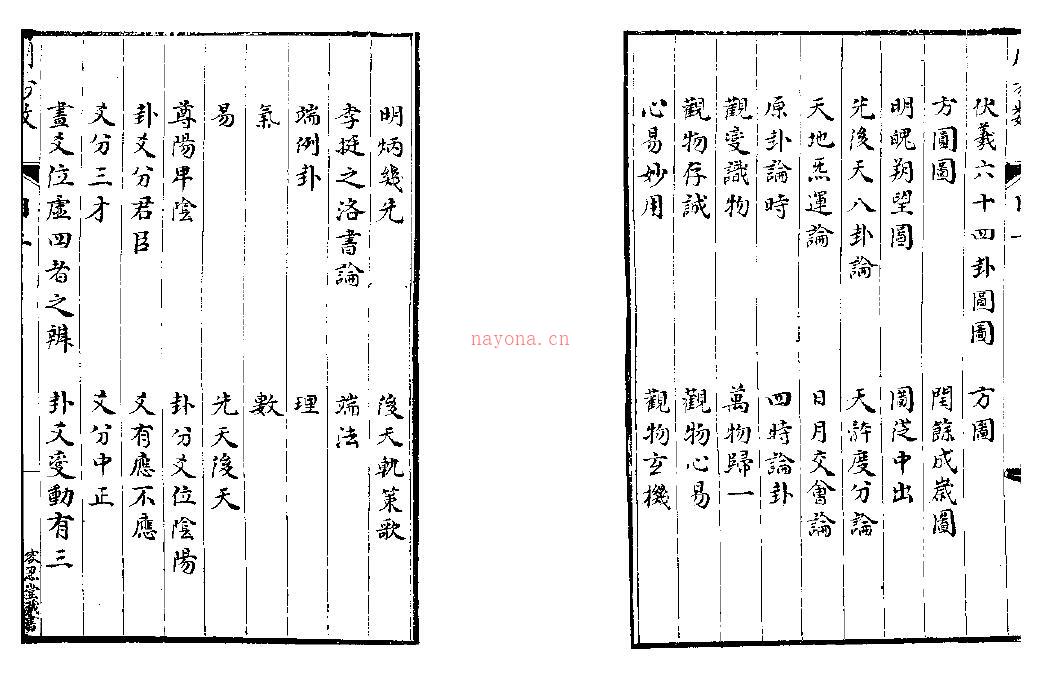 伏羲六十四卦圖圖 方圖
方圓圖 閏餘成歲圖
明魄朔望圖 圖從中出
先後天八卦論 天許度分論
天地炁運論 日月交會論
原卦論時 四時論卦
觀變識物 萬物歸一
觀物存誠 觀物心易
心易妙用 觀物玄機
明炳幾先 後天軌策歌
李挺之洛書論 端法
端例卦 理
氣 數
易 先天後天
尊陽卑陰 卦分爻位陰陽
卦爻分君臣 爻有應不應
爻分三才 爻分中正
畫爻位虛四者之辨 卦爻變動有三
nayona.cn